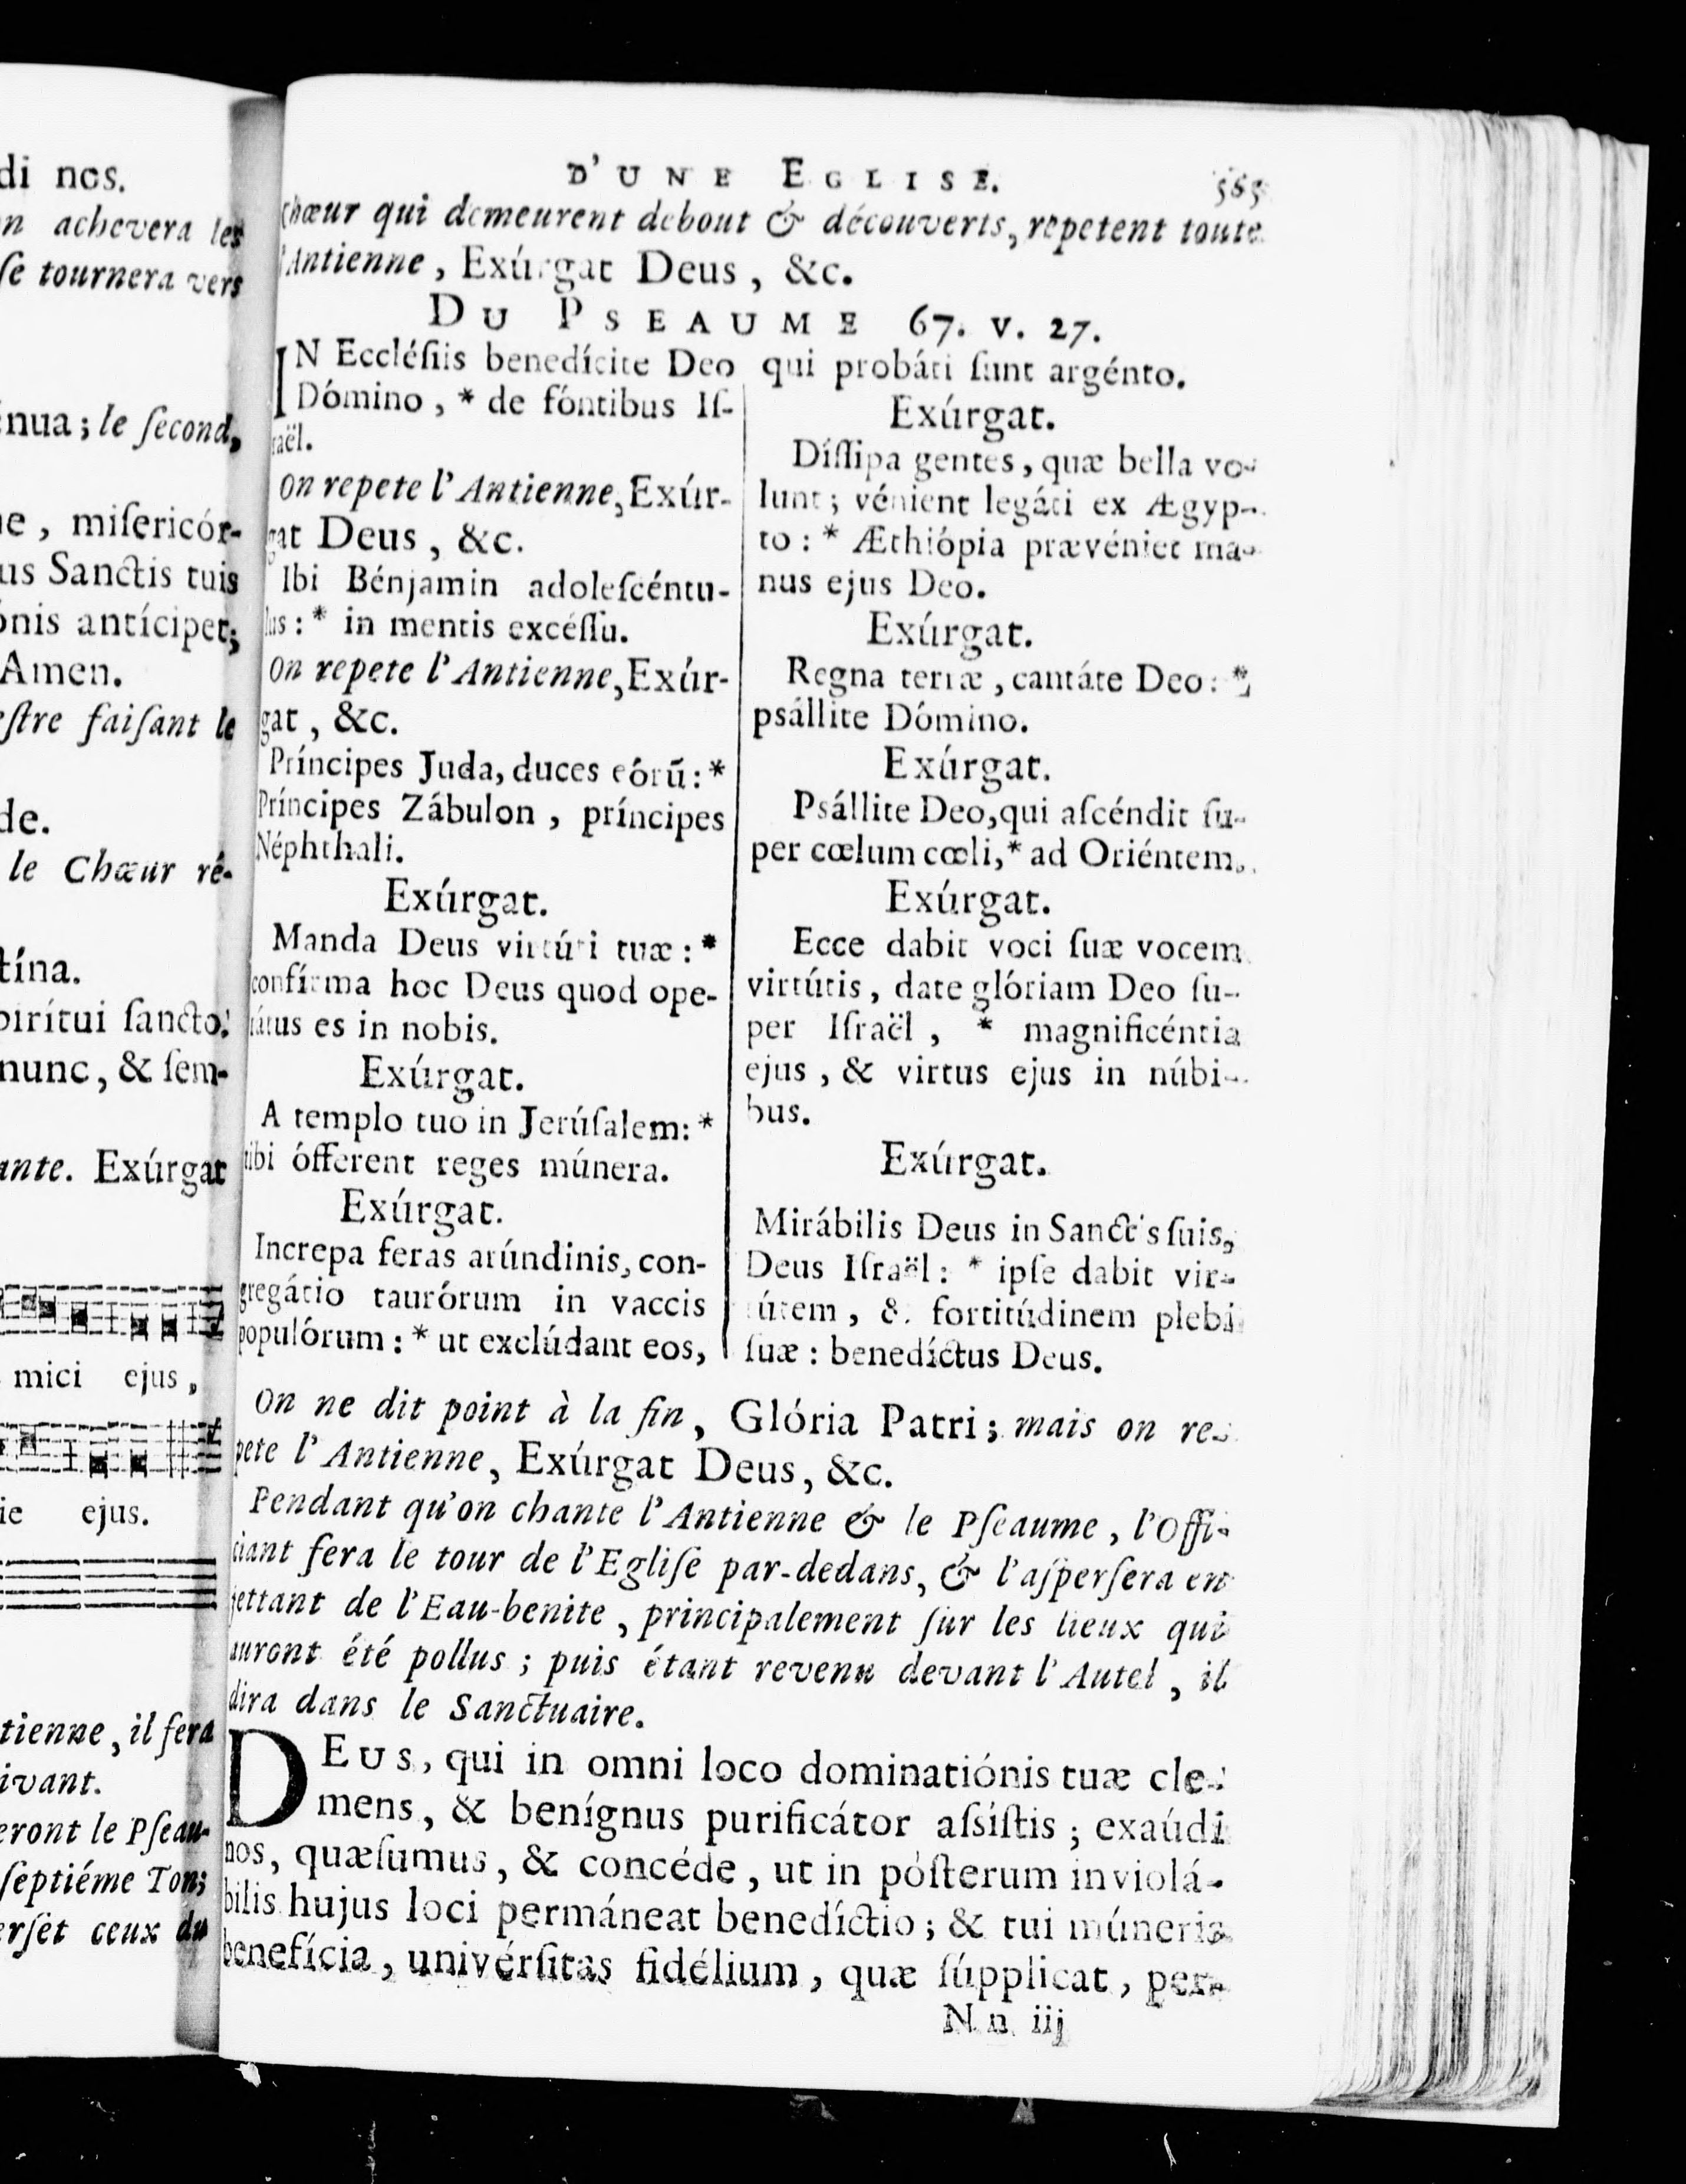 di nos.
n achevera les
ſe tournera vers
nua; le ſecond,
e, miſericór-
us Sanctis tuis
onis antícipet;
Amen.
ſtre faiſant le
de.
le Chœur ré-
tína.
piritui ſancto:
nunc, & ſem-
ante. Exúrgat
mici ejus,
ie ejus.
tienne, il fera
ivant.
eront le Pſeau-
ſeptiéme Ton;
erſet ceux du
D'UNE EGLISE. 565
chœur qui demeurent debout & découverts, repetent toute
l'Antienne, Exúrgat Deus, &c.
DU PSEAUME 67. v. 27.
IN Eccléſiis benedícite Deo
Dómino, * de fóntibus Iſ-
raël.
On repete l'Antienne, Exúr-
gat Deus, &c.
Ibi Bénjamin adoleſcéntu-
lus: * in mentis excéſſu.
On repete l'Antienne, Exúr-
gat, &c.
Príncipes Juda, duces eórũ: *
Príncipes Zábulon, príncipes
Néphthali.
Exúrgat.
Manda Deus virtúti tuæ: *
confírma hoc Deus quod ope-
rátus es in nobis.
Exúrgat.
A templo tuo in Jerúſalem: *
tibi óſferent reges múnera.
Exúrgat.
Increpa feras arúndinis, con-
gregátio taurórum in vaccis
populórum: * ut exclúdant eos,
qui probáti ſunt argénto.
Exúrgat.
Díſſipa gentes, quæ bella vo-
lunt; vénient legáti ex Ægyp-
to: * Æthiópia prævéniet ma-
nus ejus Deo.
Exúrgat.
Regna terræ, cantáte Deo: *
psállite Dómino.
Exúrgat.
Psállite Deo, qui aſcéndit ſu-
per cœlum cœli, * ad Oriéntem.
Exúrgat.
Ecce dabit voci ſuæ vocem
virtútis, date glóriam Deo ſu-
per Iſraël, * magnificéntia
ejus, & virtus ejus in núbi-
bus.
Exúrgat.
Mirábilis Deus in Sanctis ſuis,
Deus Iſraël: * ipſe dabit vir-
tútem, & fortitúdinem plebi
ſuæ: benedíctus Deus.
On ne dit point à la fin, Glória Patri; mais on re-
pete l'Antienne, Exúrgat Deus, &c.
Pendant qu'on chante l'Antienne & le Pſeaume, l'Offi-
ciant fera le tour de l'Egliſe par-dedans, & l'aſperſera en
jettant de l'Eau-benite, principalement ſur les lieux qui
auront été pollus; puis étant revenu devant l'Autel, il
dira dans le Sanctuaire.
DEUS, qui in omni loco dominatiónis tuæ cle-
mens, & benígnus purificátor aſsíſtis; exaúdi
nos, quæſumus, & concéde, ut in póſterum inviolá-
bilis hujus loci permáneat benedíctio; & tui múneris
benefícia, univérſitas fidélium, quæ ſúpplicat, per-
N n iij